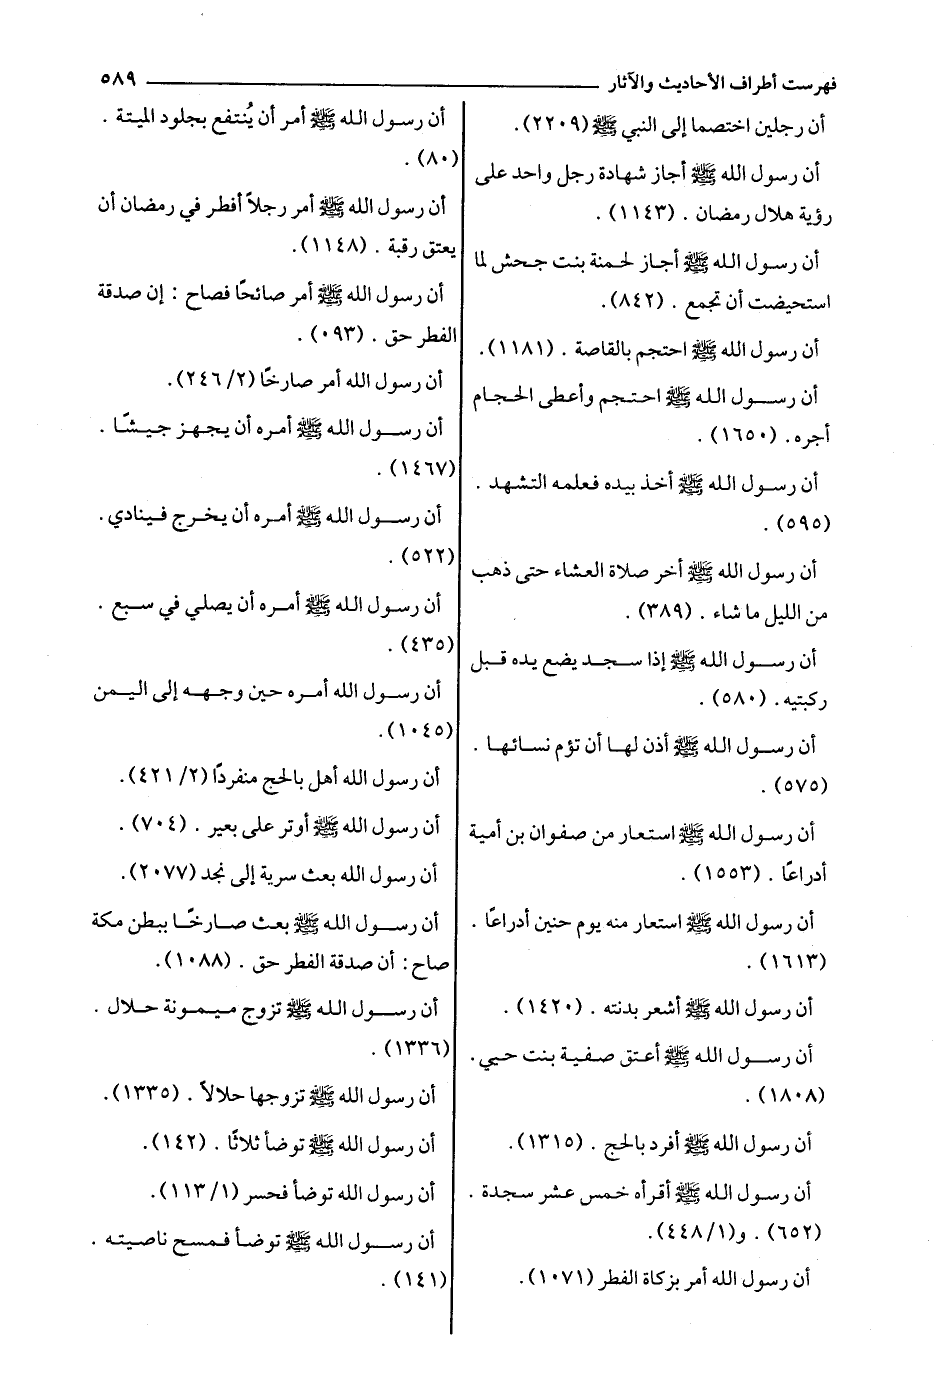 فهرست أطراف الأحاديث والآثار ٥٨٩
أن رجلين اختصما إلى النبي ﷺ (٢٢٠٩).
أن رسول الله ﷺ أجاز شهادة رجل واحد على
رؤية هلال رمضان . (١١٤٣) .
أن رسول الله ﷺ أجاز لحمنة بنت جحش لما
استحيضت أن تجمع . (٨٤٢).
أن رسول الله ﷺ احتجم بالقاصة . (١١٨١).
أن رسول الله ﷺ احتجم وأعطى الحجام
أجره. (١٦٥٠) .
أن رسول الله ﷺ أخذ بيده فعلمه التشهد .
(٥٩٥) .
أن رسول الله ﷺ أخر صلاة العشاء حتى ذهب
من الليل ما شاء . (٣٨٩) .
أن رسول الله ﷺ إذا سجد يضع يده قبل
ركبتيه. (٥٨٠) .
أن رسول الله ﷺ أذن لها أن تؤم نسائها .
(٥٧٥) .
أن رسول الله ﷺ استعار من صفوان بن أمية
أدراعًا . (١٥٥٣) .
أن رسول الله ﷺ استعار منه يوم حنين أدراعًا .
(١٦١٣) .
أن رسول الله ﷺ أشعر بدنته . (١٤٢٠) .
أن رسول الله ﷺ أعتق صفية بنت حيي.
(١٨٠٨) .
أن رسول الله ﷺ أفرد بالحج . (١٣١٥).
أن رسول الله ﷺ أقرأه خمس عشر سجدة .
(٦٥٢) . و(١/ ٤٤٨).
أن رسول الله أمر بزكاة الفطر (١٠٧١).
أن رسول الله ﷺ أمر أن يُنتفع بجلود الميتة .
(٨٠) .
أن رسول الله ﷺ أمر رجلاً أفطر في رمضان أن
يعتق رقبة . (١١٤٨).
أن رسول الله ﷺ أمر صائحًا فصاح : إن صدقة
الفطر حق . (٠٩٣) .
أن رسول الله أمر صارخًا (٢/ ٢٤٦).
أن رسول الله ﷺ أمره أن يجهز جيشًا .
(١٤٦٧) .
أن رسول الله ﷺ أمره أن يخرج فينادي.
(٥٢٢) .
أن رسول الله ﷺ أمره أن يصلي في سبع .
(٤٣٥) .
أن رسول الله أمره حين وجهه إلى اليمن
(١٠٤٥).
أن رسول الله أهل بالحج منفردًا (٢/ ٤٢١).
أن رسول الله ﷺ أوتر على بعير . (٧٠٤) .
أن رسول الله بعث سرية إلى نجد (٢٠٧٧).
أن رسول الله ﷺ بعث صارخًا ببطن مكة
صاح: أن صدقة الفطر حق . (١٠٨٨).
أن رسول الله ﷺ تزوج ميمونة حلال .
(١٣٣٦) .
أن رسول الله ﷺ تزوجها حلالاً . (١٣٣٥).
أن رسول الله ﷺ توضأ ثلاثًا . (١٤٢).
أن رسول الله توضأ فحسر (١/ ١١٣).
أن رسول الله ﷺ توضأ فمسح ناصيته .
(١٤١) .